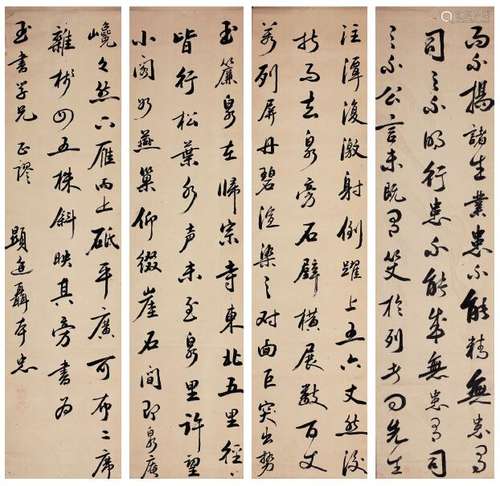 而不揚諸生業患不能精無患有
司之不明行患不能成無患有司
之不公言未既有笑於列者曰先生
注潭復激射倒躍上五六丈然後
折而去泉旁石壁橫展數百丈
若列屏丹碧渲染之对面巨突出勢
玉簾泉在歸宗寺東北五里徑〻
皆行松葉水声未至泉里許望
小閣如燕巢仰綴崖石間即泉庵
巉々然六雁而上砥平廣可布二席
雜樹四五株斜映其旁書為
玉書學兄正謬 顯廷聶忠